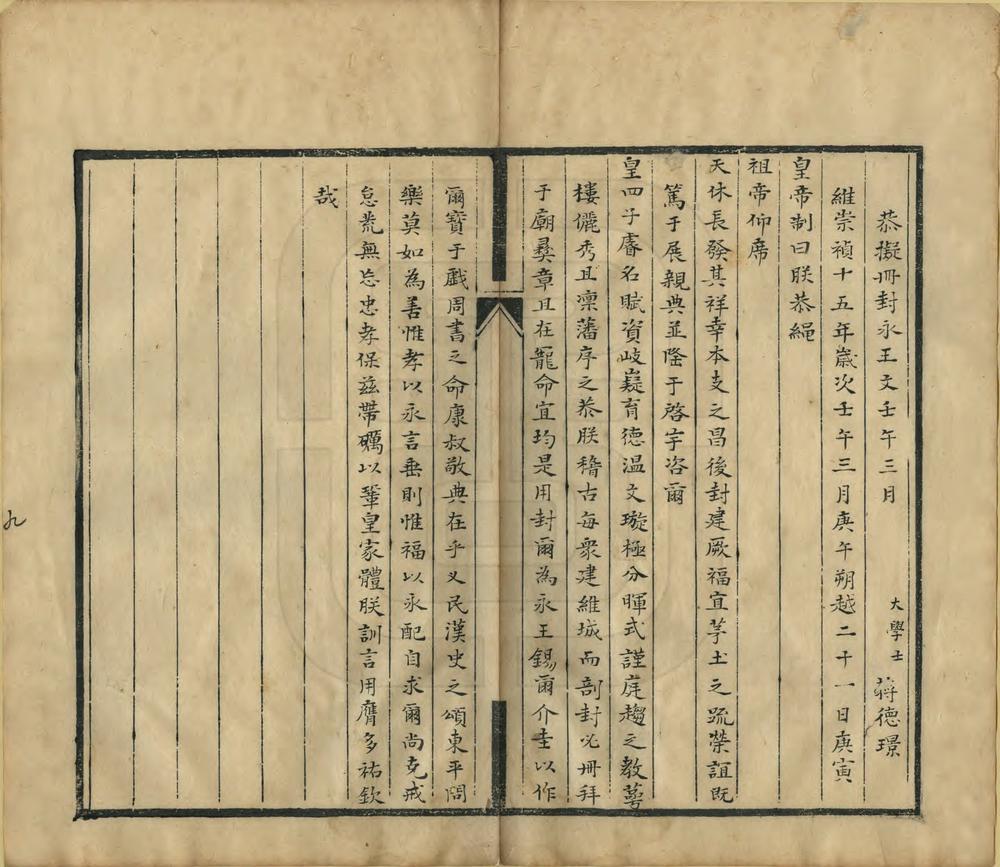 恭擬冊封永王文壬午三月
大學士 蔣德璟
維崇禎十五年歲次壬午三月庚午朔越二十一日庚寅
皇帝制曰朕恭繩
祖帝仰席
天休長發其祥幸本支之昌後封建厥福宜茅土之疏榮誼既
篤于展親典並隆于啓宇咨爾
皇四子睿名賦資岐嶷育德溫文璇極分暉式謹庭趨之教萼
樓儷秀且凜藩序之恭朕稽古每眾建維城而剖封必冊拜
于廟彞章且在寵命宜均是用封爾為永王錫爾介圭以作
爾寶于戲周書之命康叔敬典在乎乂民漢史之頌東平問
樂莫如為善惟孝以永言垂則惟福以永配自求爾尚克戒
怠荒無忘忠孝保茲帶礪以鞏皇家體朕訓言用膺多祐欽
哉
九